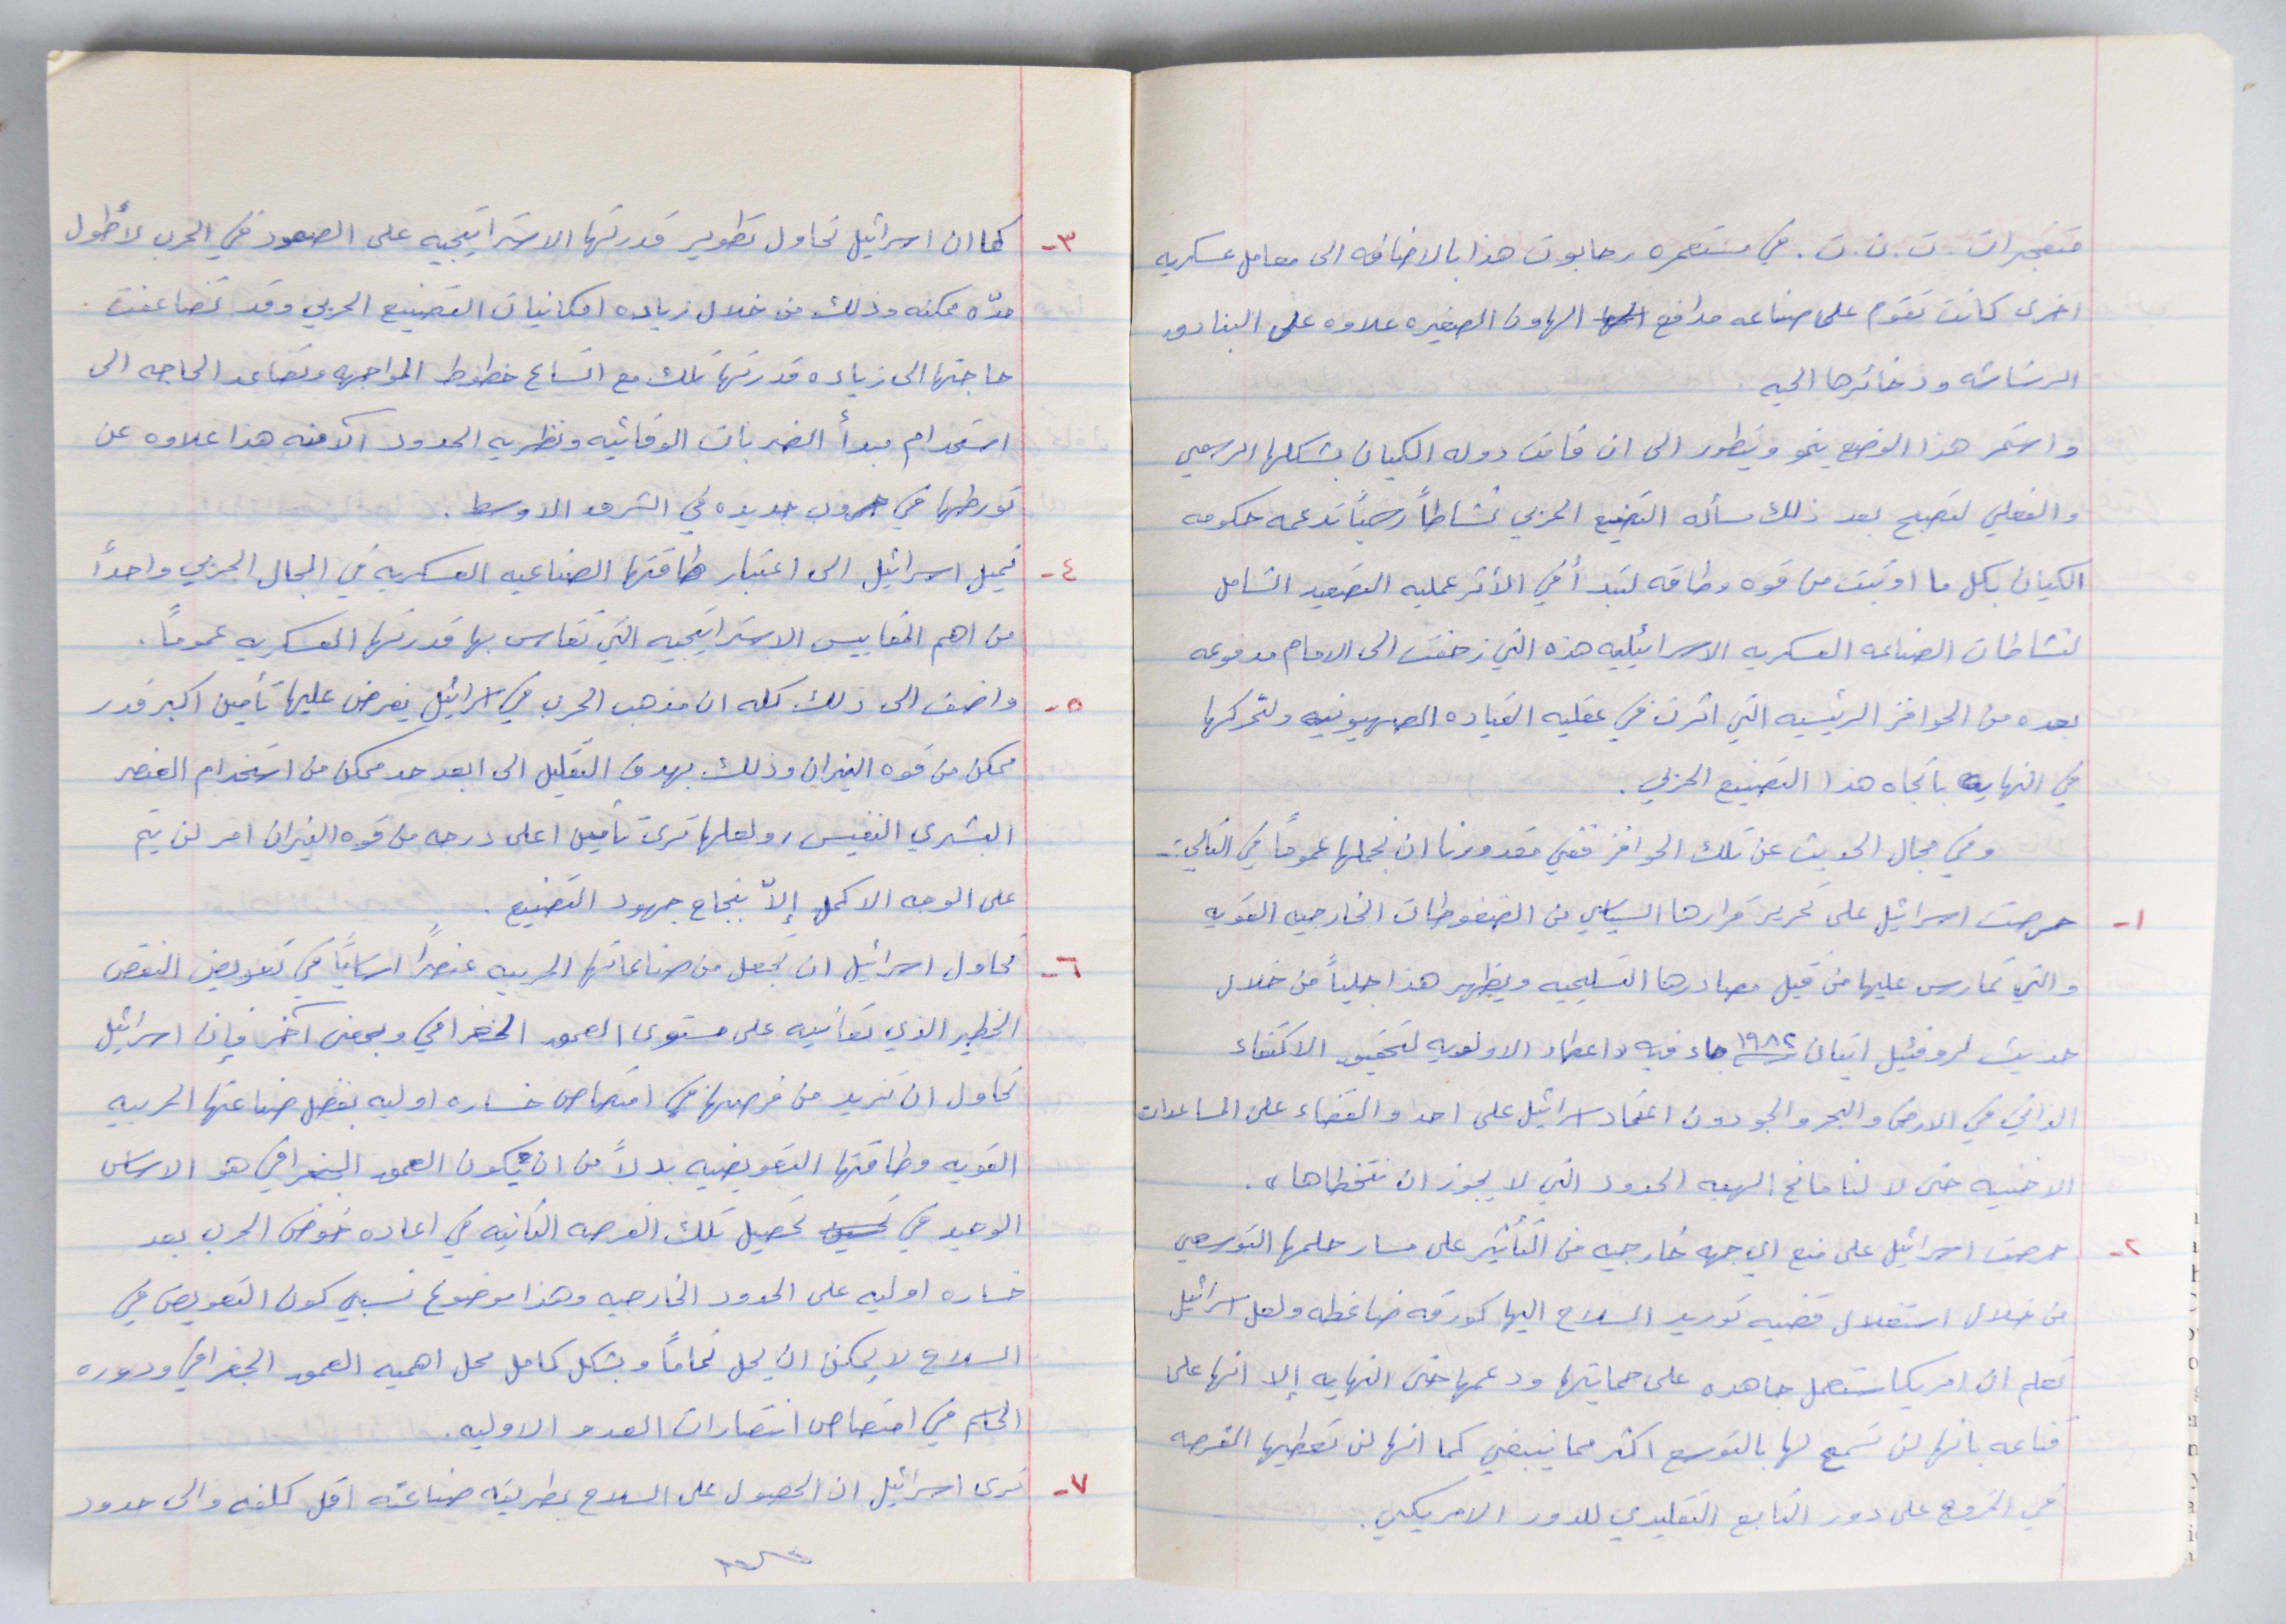 متفجرات ت.ن.ت. في مستعمره رحابوت هذا بالاضافه الى معامل عسكريه
اخرى كانت تقوم على صناعه مدافع الهاون الصغيره علاوه على البنادق
الرشاشه وذخائرها الحيه .
واستمر هذا الوضع ينمو ويتطور الى ان قامت دوله الكيان بشكلها الرسمي
والفعلي لتصبح بعد ذلك مسأله التصنيع الحربي نشاطاً رسمياً تدعمه حكومه
الكيان بكل ما اوتيت من قوه وطاقه لتبدأ في الأثر عمليه التصعيد الشامل
لنشاطات الصناعه العسكريه الاسرائيليه هذه التي زحفت الى الامام مدفوعه
بعده من الحوافز الرئيسيه التي اثرت في عقليه القياده الصهيونيه ولتحركها
في النهايه باتجاه هذا التصنيع الحربي .
وفي مجال الحديث عن تلك الحوافز ففي مقدورنا ان نجملها عموماً في التالي :-
١- حرصت اسرائيل على تحرير قرارها السياسي من الضغوطات الخارجيه القويه
والتي تمارس عليها من قبل مصادرها التسليحيه ويظهر هذا جلياً من خلال
حديث لروفئيل ايتان ١٩٨٢ جاء فيه « اعطاء الاولويه لتحقيق الاكتفاء
الذاتي في الارض والبحر والجو دون اعتماد اسرائيل على احد والقضاء على المساعدات
الاجنبيه حتى لا لنا مانح الهبه الحدود التي لا يجوز ان نتخطاها » .
٢- حرصت اسرائيل على منع اي جهه خارجيه من التأثير على مسار حلمها التوسعي
من خلال استغلال قضيه توريد السلاح اليها كورقه ضاغطه ولعل اسرائيل
تعلم ان امريكا ستعمل جاهده على حمايتها ودعمها حتى النهايه إلا انها على
قناعه بانها لن تسمح لها بالتوسع اكثر مما ينبغي كما انها لن تعطيها الفرصه
في الخروج على دور التابع التقليدي للدور الامريكي .
٣- كما ان اسرائيل تحاول تطوير قدرتها الاستراتيجيه على الصمود في الحرب لأطول
مدّه ممكنه وذلك من خلال زياده امكانيات التصنيع الحربي وقد تضاعفت
حاجتها الى زياده قدرتها تلك مع اتساع خطوط المواجهه وتصاعد الحاجه الى
استخدام مبدأ الضربات الوقائيه ونظريه الحدود الآمنه هذا علاوه عن
تورطها في حروب جديده في الشرق الاوسط .
٤- تميل اسرائيل الى اعتبار طاقتها الصناعيه العسكريه في المجال الحربي واحداً
من اهم المقاييس الاستراتيجيه التي تقاس بها قدرتها العسكريه عموماً .
٥- واضف الى ذلك كله ان مذهب الحرب في اسرائيل يفرض عليها تأمين اكبر قدر
ممكن من قوه النيران وذلك بهدف التقليل الى ابعد حد ممكن من استخدام العنصر
البشري النفيس ، ولعلها ترى تأمين اعلى درجه من قوه النيران امر لن يتم
على الوجه الاكمل إلاّ بنجاح جهود التصنيع .
٦- تحاول اسرائيل ان تجعل من صناعاتها الحربيه عنصراً اساسياً في تعويض النقص
الخطير الذي تعانيه على مستوى العمق الجغرافي وبمعنى آخر فإن اسرائيل
تحاول ان تزيد من فرصتها في امتصاص خساره اوليه بفضل صناعتها الحربيه
القويه وطاقتها التعويضيه بدلاً من ان يكون العمق الجغرافي هو الاساس
الوحيد في تحصيل تلك الفرصه الثانيه في اعاده خوض الحرب بعد
خساره اوليه على الحدود الخارجيه وهذا موضوع نسبي كون التعويض في
السلاح لا يمكن ان يحل تماماً وبشكل كامل محل اهميه العمق الجغرافي ودوره
الحاسم في امتصاص انتصارات العدو الاوليه .
٧- ترى اسرائيل ان الحصول على السلاح بطريقه صناعته اقل كلفه والى حدود